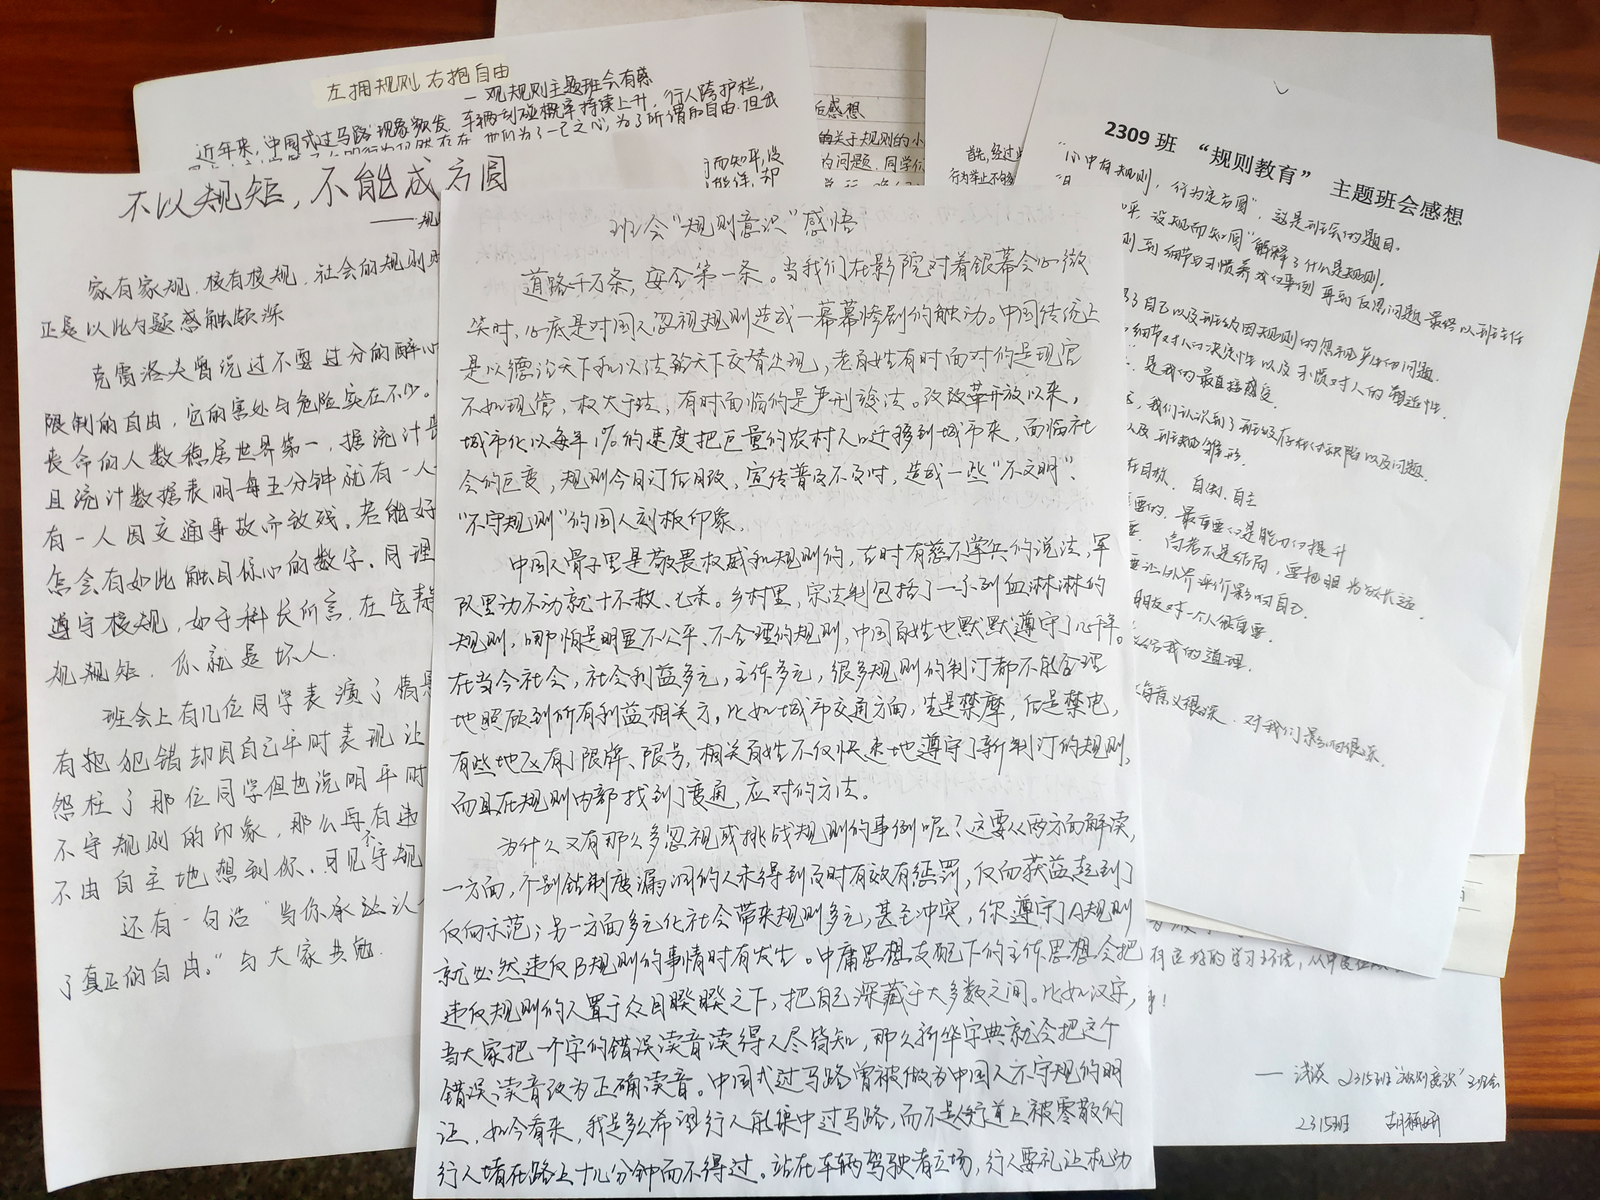 左拥规则 右抱自由
—观规则主题班会有感
近年来,中国式过马路现象频发,车辆刮碰概率持续上升,行人跨护栏,
他们为了一己之心,为了所谓的自由,但我
后感想
的关于规则的小
的问题.同学们
首先,经过此
行为举止不够
不以规矩,不能成方圆
——规
家有家规,校有校规,社会的规则
正是以此为题感触颇深
克雷洛夫曾说过不要过分的醉心
限制的自由,它的害处与危险实在不少。
丧命的人数稳居世界第一.据统计
且统计数据表明每五分钟就有一人
有一人因交通事故而致残.若能好
怎会有如此触目惊心的数字.同理
遵守校规,如于科长所言.在它
规规矩.你就是坏人.
班会上有几位同学表演了情景
有把犯错却因自己平时表现让
怨枉了那位同学但也说明平时
不守规则的印象,那么再有违
不由自主地想到你.可见不守规
还有一句浩"当你永远认
了真正的自由。"与大家共勉.
班会"规则意识"感悟
道路千万条,安全第一条。当我们在影院对着银幕会心微
笑时,心底是对国人忽视规则造成一幕幕惨剧的触动。中国传统上
是以德治天下和以法治天下交替出现,老百姓有时面对的是现官
不如现管,权大于法,有时面临的是严刑峻法。改改革开放以来,
城市化以每年1%的速度把巨量的农村人口迁移到城市来,面临社
会的巨变,规则今月订后月改,宣传普及不及时,造成一些"不文明"、
"不守规则"的国人刻板印象.
中国人骨子里是敬畏权威和规则的,古时有慈不掌兵的说法,军
队里动不动就十不赦、七杀。乡村里,宗法制包括了一系列血淋淋的
规则,哪怕是明显不公平、不合理的规则,中国百姓也默默遵守了几千年。
在当今社会,社会利益多元,主体多元,很多规则的制订都不能合理
地照顾到所有利益相关方,比如城市交通方面,先是禁摩,后是禁电,
有些地区有了限牌、限号,相关百姓不仅快速地遵守了新制订的规则,
而且在规则内部找到了变通,应对的方法。
为什么又有那么多忽视或挑战规则的事例呢?这要从两方面解读,
一方面,个别钻制度漏洞的人未得到及时有效有惩罚,反而获益起到了
反向示范;另一方面多元化社会带来规则多元,甚至冲突,你遵守了A规则
就必然违反B规则的事情时有发生。中庸思想支配下的主体思想会把
违反规则的人置于众目睽睽之下,把自己深藏于大多数之间。比如汉字,
当大家把一个字的错误读音读得人尽皆知,那么新华字典就会把这个
错误读音改为正确读音。中国式过马路曾被做为中国人不守规的明
证,如今看来,我是多么希望行人能集中过马路,而不是人行道上被零散的
行人堵在路上十几分钟而不得过。站在车辆驾驶者立场,行人要礼让机动
2309 班 "规则教育" 主题班会感想
"心中有规则,行为定方圆",这是班会的题目。
没规而知圆"解释了什么是规则.
则到细节习惯养成事例再到反思问题最终以班主任
了自己以及班级因规则的忽视产生的问题.
细节对人的决定性以及习惯对人的塑造性.
是我的最直接感受.
我们认识到了班级存在的缺陷以及问题
以及班级雏形.
自制.自主
要的.最重要的是能力的提升
高考不是结局,要把眼光放长远
让外界评价影响自己
朋友对一个人很重要
给我的道理.
义很深.对我们影响很深.
有良好的学习环境,从中
——浅谈2315班"规则意识"班会
2315班